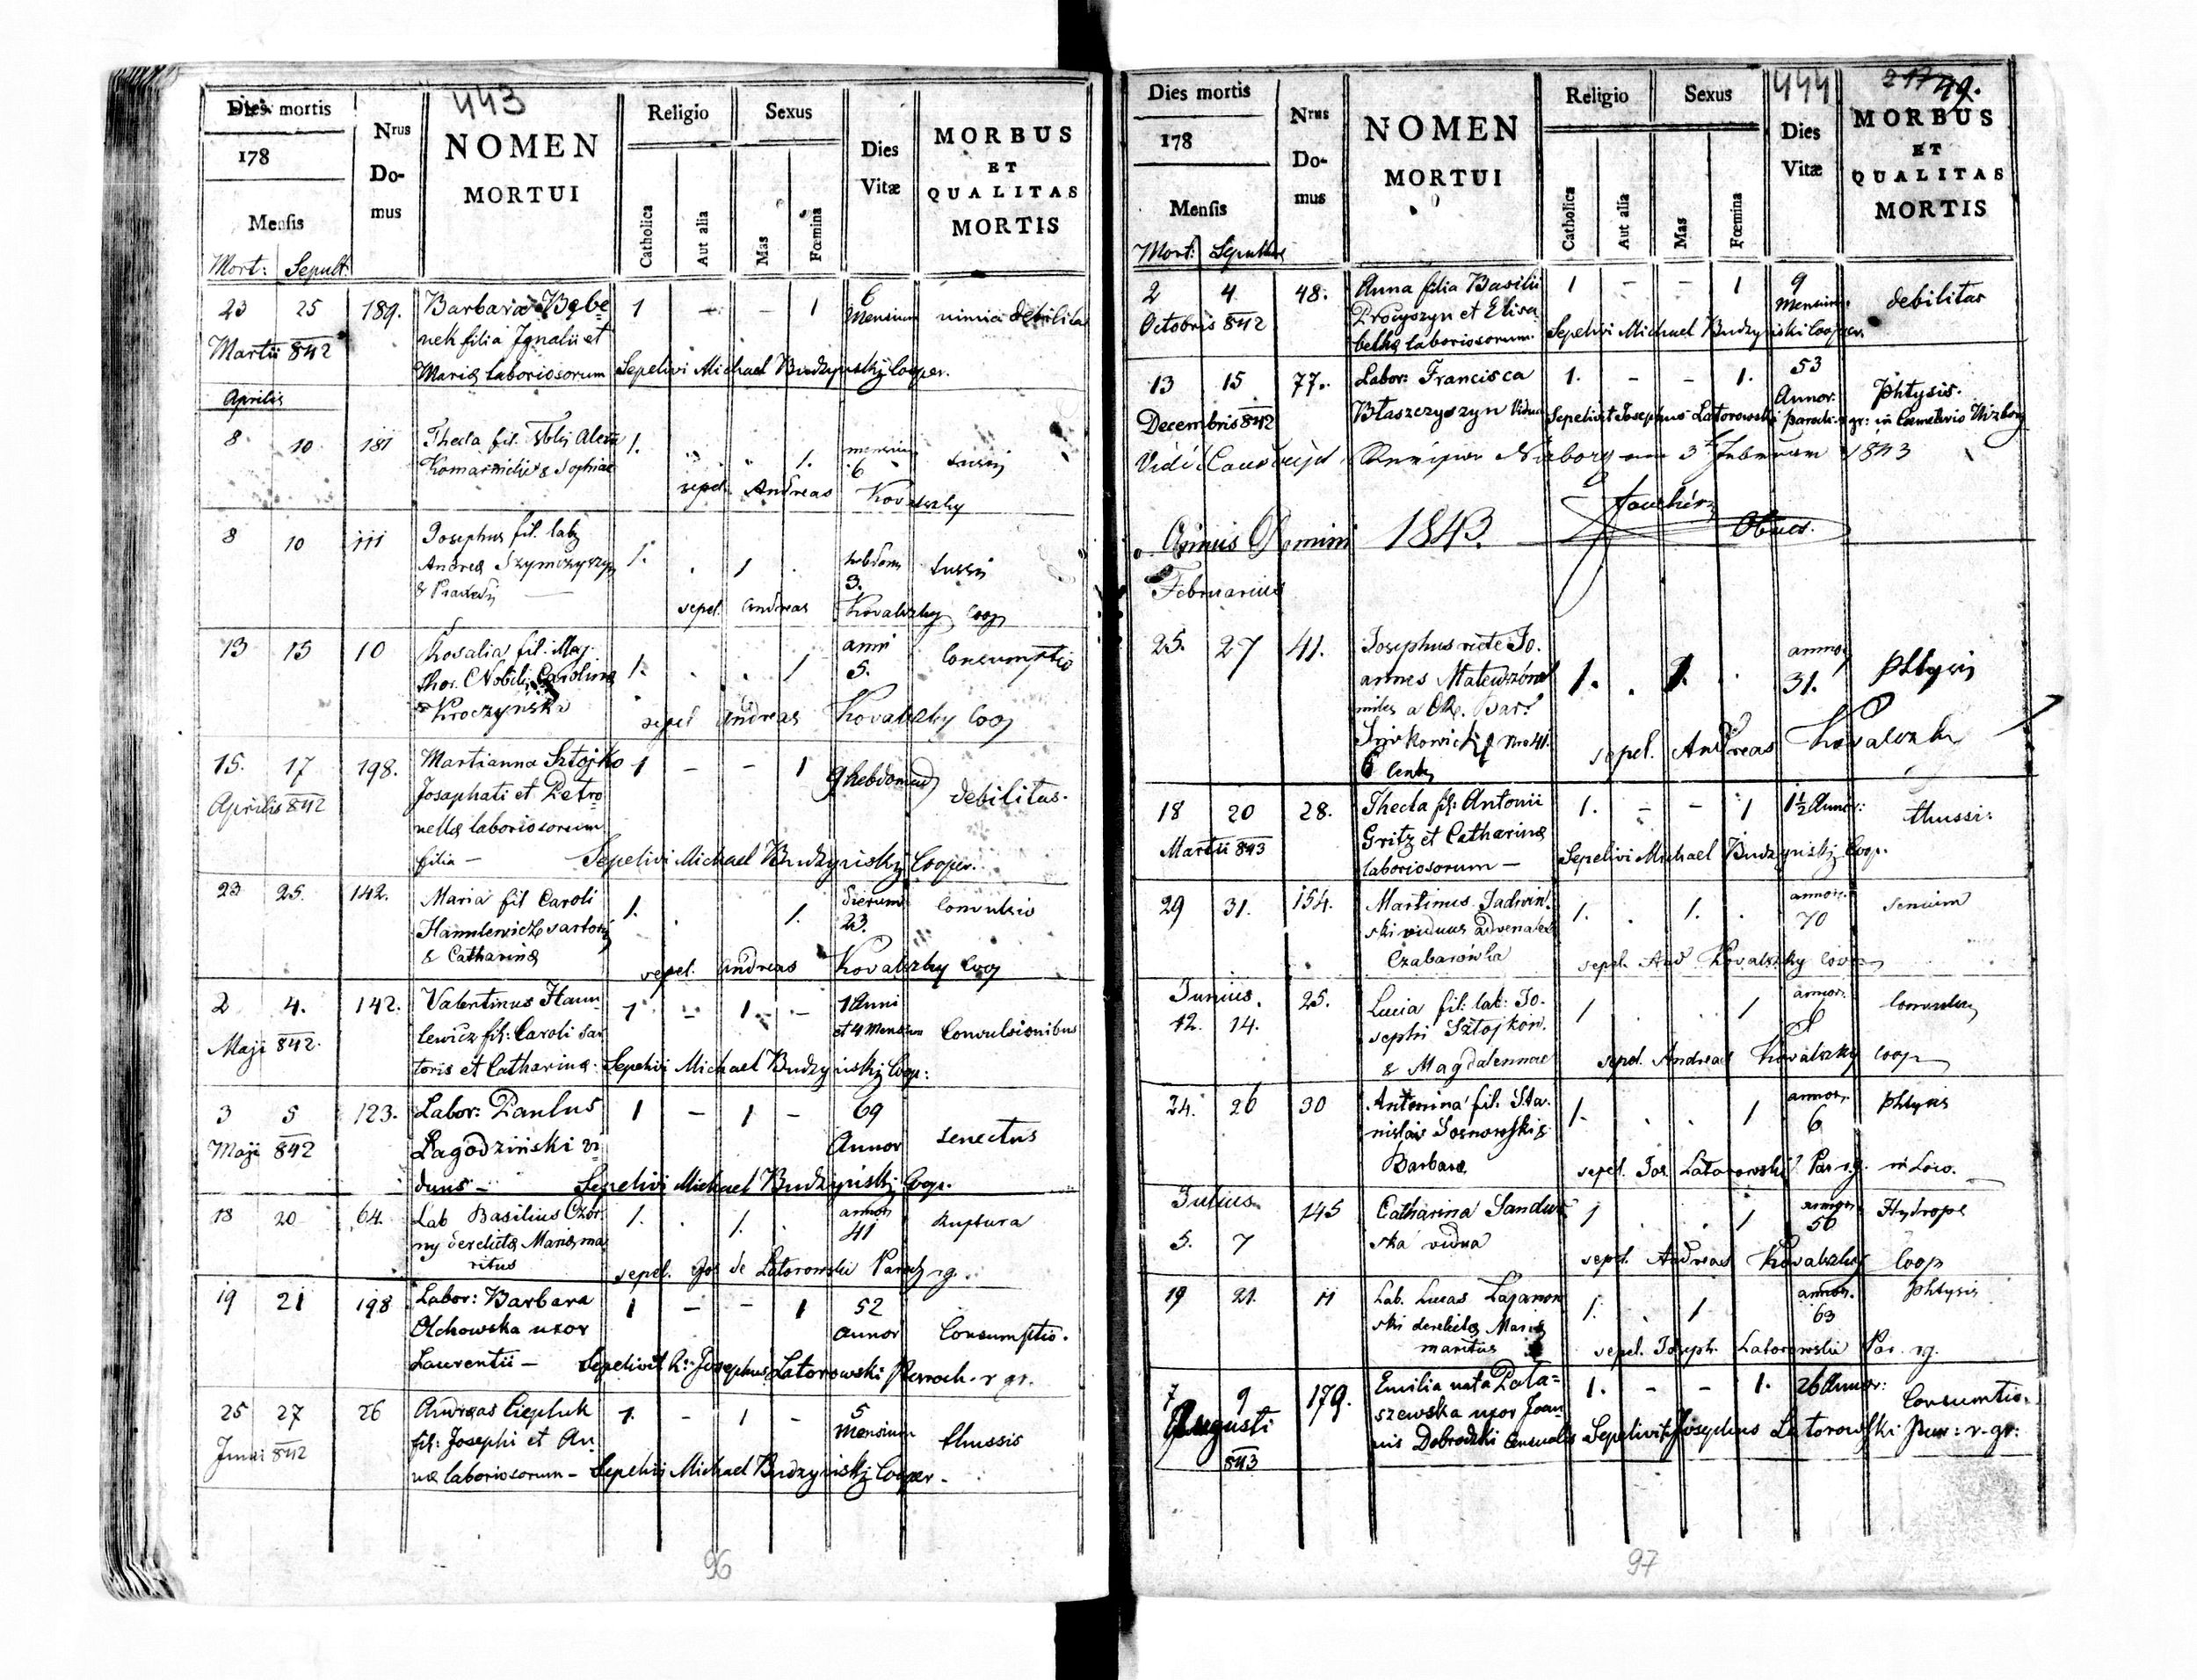 443
Dies mortis
178
Mensis
Mort: Sepult:
Nrus Do- mus
NOMEN
MORTUI
Religio
Catholica
Aut alia
Sexus
Mas
Fœmina
Dies Vitæ
MORBUS
ET
QUALITAS
MORTIS
23 25 189. Barbara Babe 1 - - 1 6 Mensium nimia debilita
Martii 842 nek filia Ignatii et
Mariæ laboriosorum Sepelivi Michael Budzyński Cooper.
Aprilis
8 10 181 Thecla fil. 1. 1. mensium 6 tussis
& Sophiae
sepel. Andreas Kovalszky
8 10 111 Josephus fil. lab 1. . 1 . hebdom 3. tussis
Andreæ Szymczyszyn
&
sepel. Andreas Kovalszky Coop
13 15 10 Rosalia fil. 1. . . 1 anni 5. Consumptio
Nobil. Carolina
& Kroczyńska
sepel Andreas Kovalszky Coop
15. 17 198. Martianna Sztojko 1 - - 1 9 hebdomad debilitas.
Aprilis 842 Josaphati et Petro
nellæ laboriosorum
filia - Sepelivi Michael Budzyński Cooper.
23 25. 142. Maria fil Caroli 1. . 1. dierum 23. Convulsio
Hamulewicz sartoris
& Catharinæ
sepel. Andreas Kovalszky Coop
2 4. 142. Valentinus Hamu 1 - 1 - 1 Anni et 4 Mensium Convulsionibus
Maji 842. lewicz fil: Caroli Sar
toris et Catharinæ. Sepelivi Michael Budzyński Coop:
3 5 123. Labor: Paulus 1 - 1 - 69 Annor Senectus
Maji 842 Lagodziński vi
duus - Sepelivi Michael Budzyński Coop.
18 20 64. Lab Basilius Czor 1. . 1. . annor 41 Ruptura
ny derelictæ Mariæ ma
ritus
sepel. Jos de Latorowski Paroch rg.
19 21 198 Labor: Barbara 1 - - 1 52 Annor Consumptio.
Olchowska uxor
Laurentii - Sepelivit Josephus Latorowski Paroch. r gr.
25 27 26 Andreas Ciepluk 1. - 1 - 5 Mensium thussis
842 fil: Josephi et An
næ laboriosorum - Sepelivi Michael Budzyński Cooper -
96
444
49.
Dies mortis
178
Mensis
Mort: Sepultur
Nrus Do- mus
NOMEN
MORTUI
Religio
Catholica
Aut alia
Sexus
Mas
Fœmina
Dies Vitæ
MORBUS
ET
QUALITAS
MORTIS
2 4 48. Anna filia Basilii 1 - - 1 9 Mensium debilitas
Octobris 842 Procyszyn et Elisa
bethæ laboriosorum. Sepelivi Michael Budzyński Cooper.
13 15 77. Labor: Francisca 1. - - 1. 53 Annor. Phtysis.
Decembris 842 Błaszczyszyn Vidua Sepelivit Josephus Latorowski Paroch. r gr: in Cœmeterio
Vidi 1843
Annus Domini 1843.
Februarius
25. 27 41. Josephus recte Jo. 1. . 1. . annor 31. phtysis
annes
miles a
Nro 41.
sepel. Andreas Kovalszky
18 20 28. Thecla fil: Antonii 1. - - 1 1½ Annor: thussis
Martii 843 Gritz et Catharinæ
laboriosorum - Sepelivi Michael Budzyński Coop.
29 31. 154. Martinus Jadwin 1. . 1. . annor. 70 Senium
ski viduus advena ex
Czabarówka
sepel. And Kovalszky Coop
Junius.
12. 14. 25. Lucia fil: lab: Jo. 1 . . 1 annor. 6 Convuls
sephi Sztojkow.
& Magdalennae
sepel. Andreas Kovalszky Coop
24. 26 30 Antonina fil. Sta. 1. . . 1 annor. 6 phtysis
nislai Sosnowski &
Barbaræ
sepel. Jos. Latorowski Par rg. in Loco.
Julius.
5. 7 145 Catharina Sandur 1 . . 1 annor 56 Hydrope
ska vidua
sepel. Andreas Kovalszky Coop
19 21. 11 Lab. Lucas 1. . 1 annor. 63 phtysis
ski derelictæ Mariæ
maritus
sepel. Joseph. Latorowski Par. rg.
7 9 179. Emilia nata Pata= 1. - - 1. 26 Annor: Consumtio.
Augusti 843 szewska uxor Joan
nis Dobrodzki Sepelivit Josephus Latorowski Par: r. gr:
97